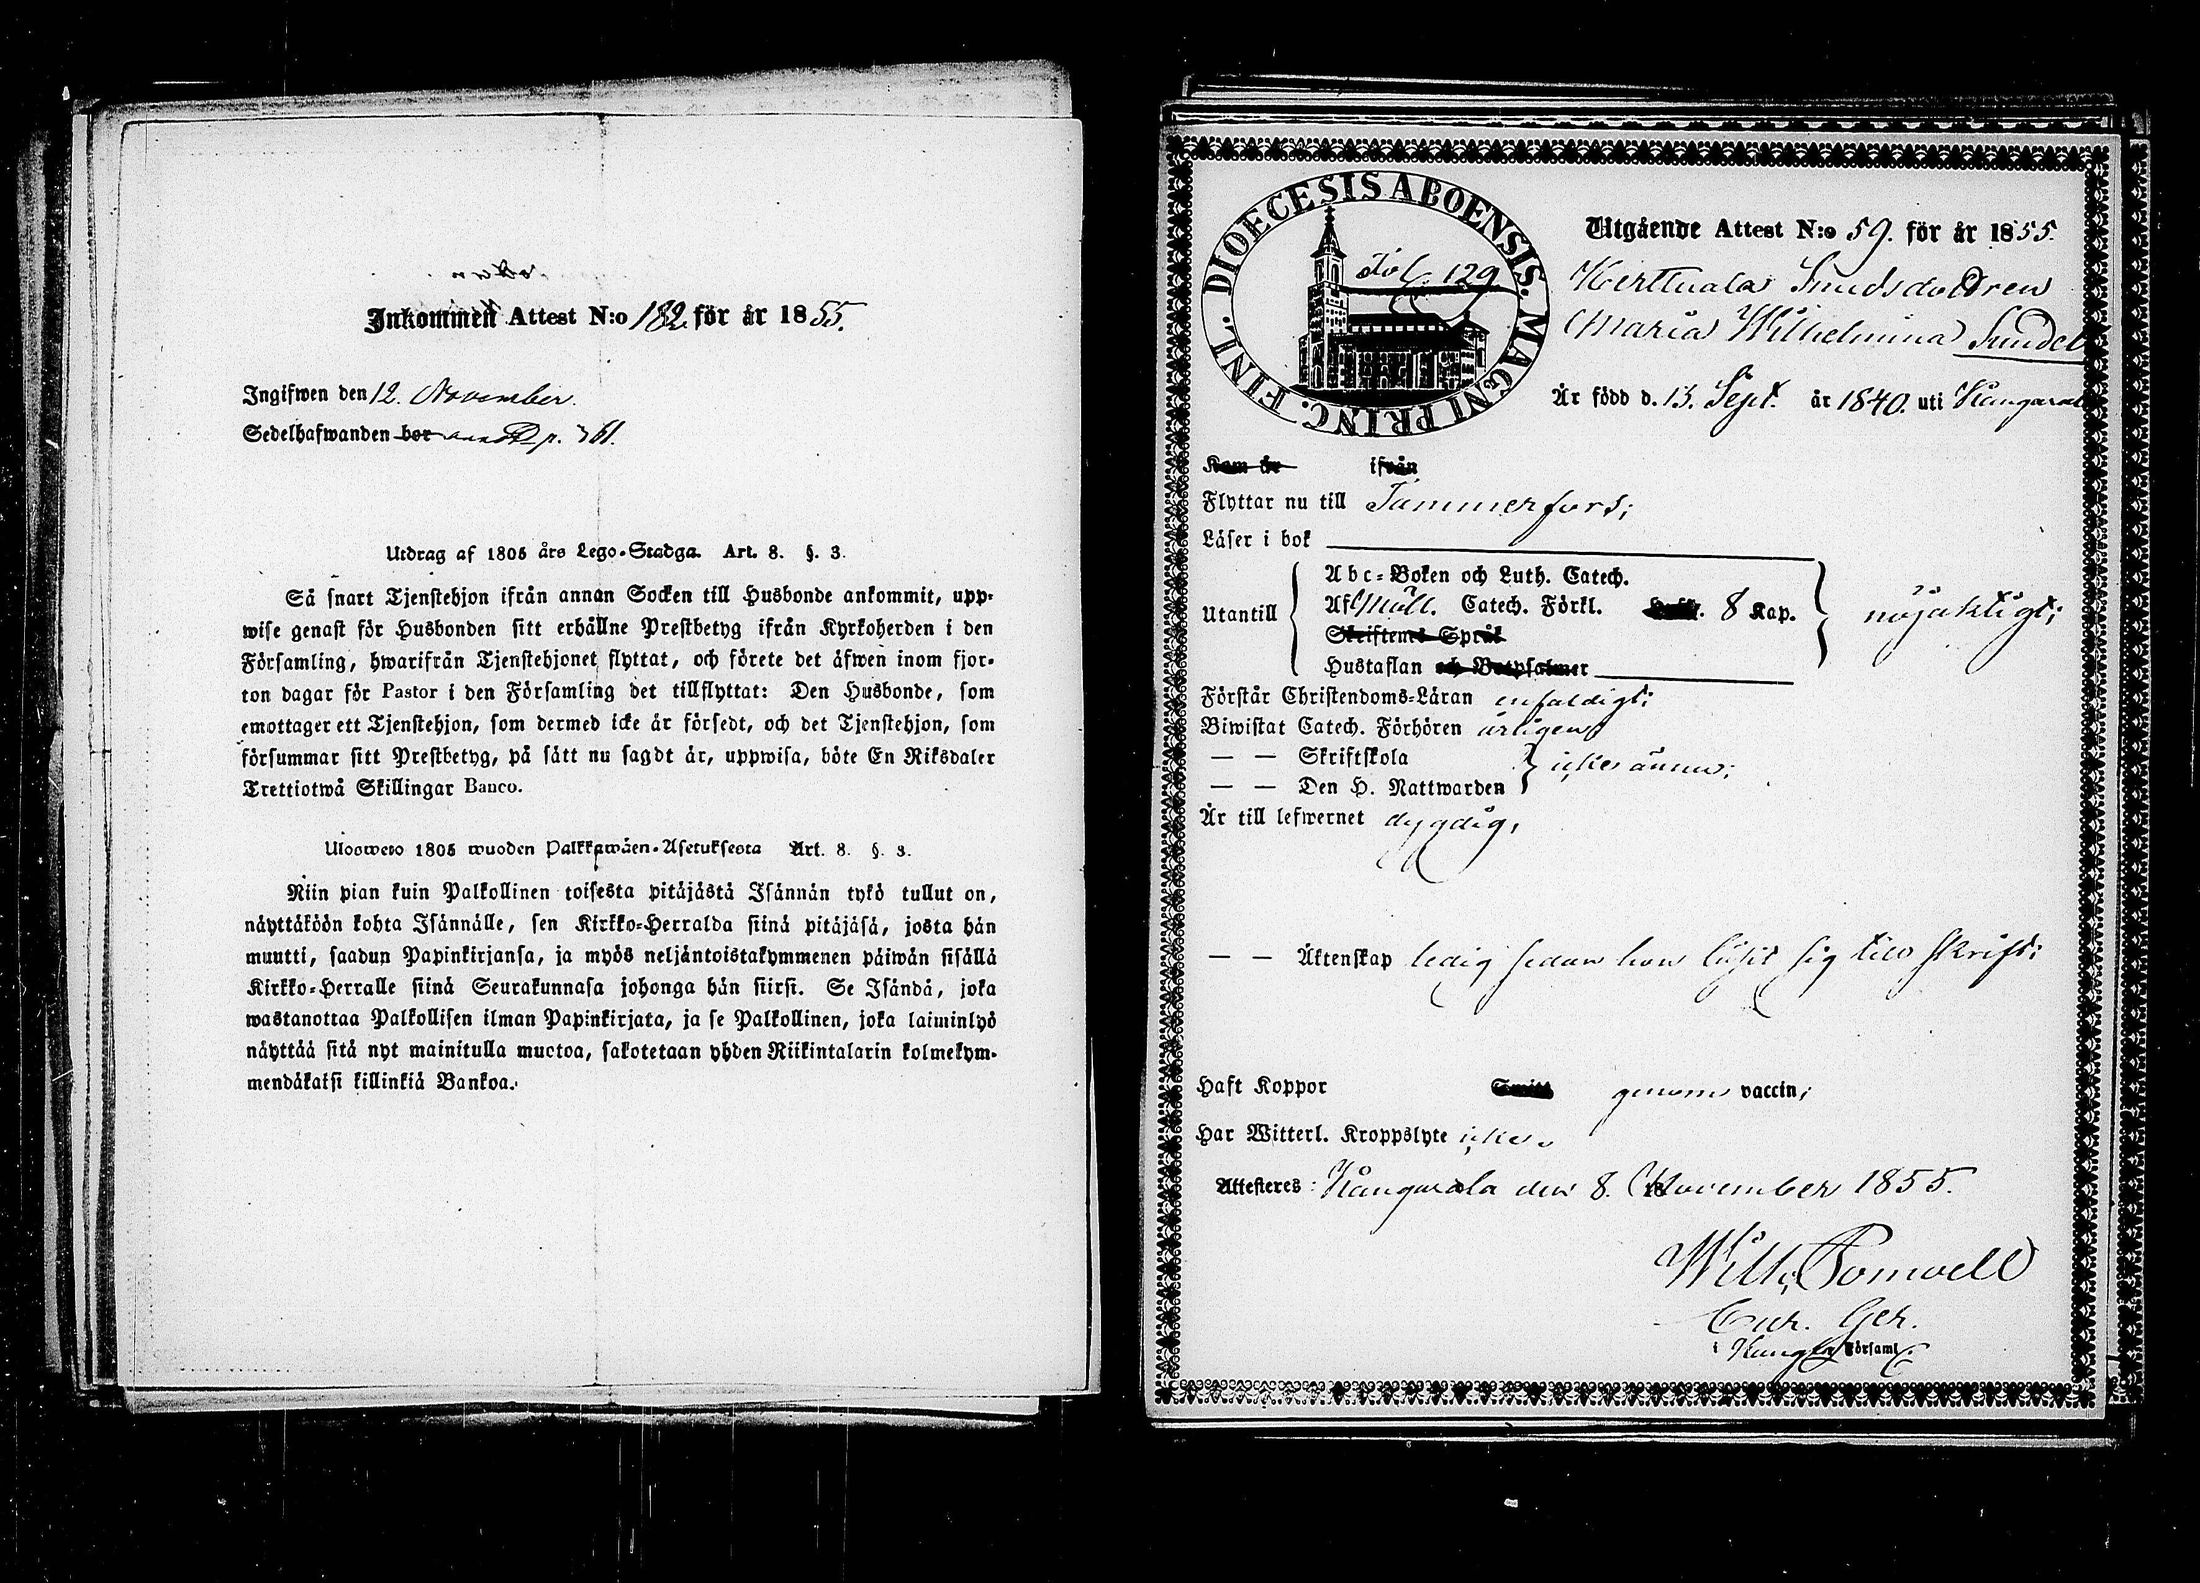 Inkommen Attest N:o 182 för år 1855.
Ingifwen den 12. November.
Sedelhafwanden bor p. 361.
Utdrag af 1805 års Lego-Stadga. Art. 8. §. 3.
Så snart Tjenstehjon ifrån annan Socken till Husbonde ankommit, upp-
wise genast för Husbonden sitt erhållne Prestbetyg ifrån Kyrkoherden i den
Församling, hwarifrån Tjenstehjonet flyttat, och förete det äfwen inom fjor-
ton dagar för Pastor i den Församling det tillflyttat: Den Husbonde, som
emottager ett Tjenstehjon, som dermed icke är försedt, och det Tjenstehjon, som
försummar sitt Prestbetyg, på sätt nu sagdt är, uppwisa, böte En Riksdaler
Trettiotwå Skillingar Banco.
Ulosweto 1805 wuoden Palkkawäen-Asetuksesta Art. 8. §. 3.
Niin pian kuin Palkollinen toisesta pitäjästä Isännän tykö tullut on,
näyttäköön kohta Isännälle, sen Kirkko-Herralda siinä pitäjäsä, josta hän
muutti, saadun Papinkirjansa, ja myös neljäntoistakymmenen päiwän sisällä
Kirkko-Herralle siinä Seurakunnasa johonga hän siirsi. Se Isändä, joka
wastanottaa Palkollisen ilman Papinkirjata, ja se Palkollinen, joka laiminlyö
näyttää sitä nyt mainitulla muotoa, sakotetaan yhden Riikintalarin kolmekym-
mendäkatsi killinkiä Bankoa.
DIOECESIS ABOENSIS. MAGNI PRINC. FINL.
Fol. 129
Utgående Attest N:o 59. för år 1855.
Kerttuala Smedsdottren
Maria Wilhelmina Sundel
Är född d. 13. Sept. år 1840. uti Kangasala
Kom år ifrån
Flyttar nu till Tammerfors;
Läser i bok
Utantill
Abc-Boken och Luth. Catech.
Af Möll. Catech. Förkl. 8 Kap.
Skriftenes Språk
Hustaflan och Botpsalmer
nöjaktigt;
Förstår Christendoms-Läran enfaldigt;
Biwistat Catech. Förhören årligen
— — Skriftskola
— — Den H. Nattwarden
icke ännu;
Är till lefwernet dygdig,
— — Äktenskap ledig sedan hon läsit sig till skrift;
Haft Koppor genom vaccin;
Har Witterl. Kroppslyte icke.
Attesteres: Kangasala den 8. November 1855.
Wilh. Pomoell
Cur. Ger.
i Kangla Församl.